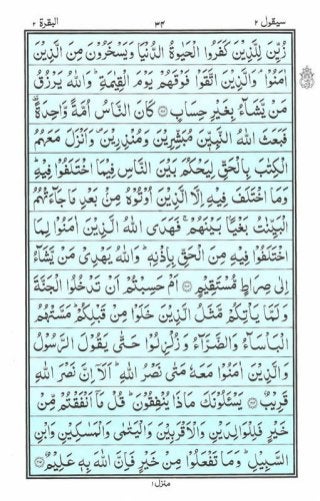 البقرة ٢ ٣٤ سيقول ٢
زُيِّنَ لِلَّذِيْنَ كَفَرُوا الْحَيٰوةُ الدُّنْيَا وَيَسْخَرُوْنَ مِنَ الَّذِيْنَ
اٰمَنُوْا ۘ وَالَّذِيْنَ اتَّقَوْا فَوْقَهُمْ يَوْمَ الْقِيٰمَةِ ؕ وَاللّٰهُ يَرْزُقُ
مَنْ يَّشَآءُ بِغَيْرِ حِسَابٍ ۝ كَانَ النَّاسُ اُمَّةً وَّاحِدَةً ۟
فَبَعَثَ اللّٰهُ النَّبِيّٖنَ مُبَشِّرِيْنَ وَمُنْذِرِيْنَ ۪ وَاَنْزَلَ مَعَهُمُ
الْكِتٰبَ بِالْحَقِّ لِيَحْكُمَ بَيْنَ النَّاسِ فِيْمَا اخْتَلَفُوْا فِيْهِ ؕ
وَمَا اخْتَلَفَ فِيْهِ اِلَّا الَّذِيْنَ اُوْتُوْهُ مِنْۢ بَعْدِ مَا جَآءَتْهُمُ
الْبَيِّنٰتُ بَغْيًۢا بَيْنَهُمْ ۚ فَهَدَى اللّٰهُ الَّذِيْنَ اٰمَنُوْا لِمَا
اخْتَلَفُوْا فِيْهِ مِنَ الْحَقِّ بِاِذْنِهٖ ؕ وَاللّٰهُ يَهْدِيْ مَنْ يَّشَآءُ
اِلٰى صِرَاطٍ مُّسْتَقِيْمٍ ۝ اَمْ حَسِبْتُمْ اَنْ تَدْخُلُوا الْجَنَّةَ
وَلَمَّا يَاْتِكُمْ مَّثَلُ الَّذِيْنَ خَلَوْا مِنْ قَبْلِكُمْ ؕ مَسَّتْهُمُ
الْبَاْسَآءُ وَالضَّرَّآءُ وَزُلْزِلُوْا حَتّٰى يَقُوْلَ الرَّسُوْلُ
وَالَّذِيْنَ اٰمَنُوْا مَعَهٗ مَتٰى نَصْرُ اللّٰهِ ؕ اَلَاۤ اِنَّ نَصْرَ اللّٰهِ
قَرِيْبٌ ۝ يَسْـَٔلُوْنَكَ مَاذَا يُنْفِقُوْنَ ؕ قُلْ مَاۤ اَنْفَقْتُمْ مِّنْ
خَيْرٍ فَلِلْوَالِدَيْنِ وَالْاَقْرَبِيْنَ وَالْيَتٰمٰى وَالْمَسٰكِيْنِ وَابْنِ
السَّبِيْلِ ؕ وَمَا تَفْعَلُوْا مِنْ خَيْرٍ فَاِنَّ اللّٰهَ بِهٖ عَلِيْمٌ ۝
منزل ١